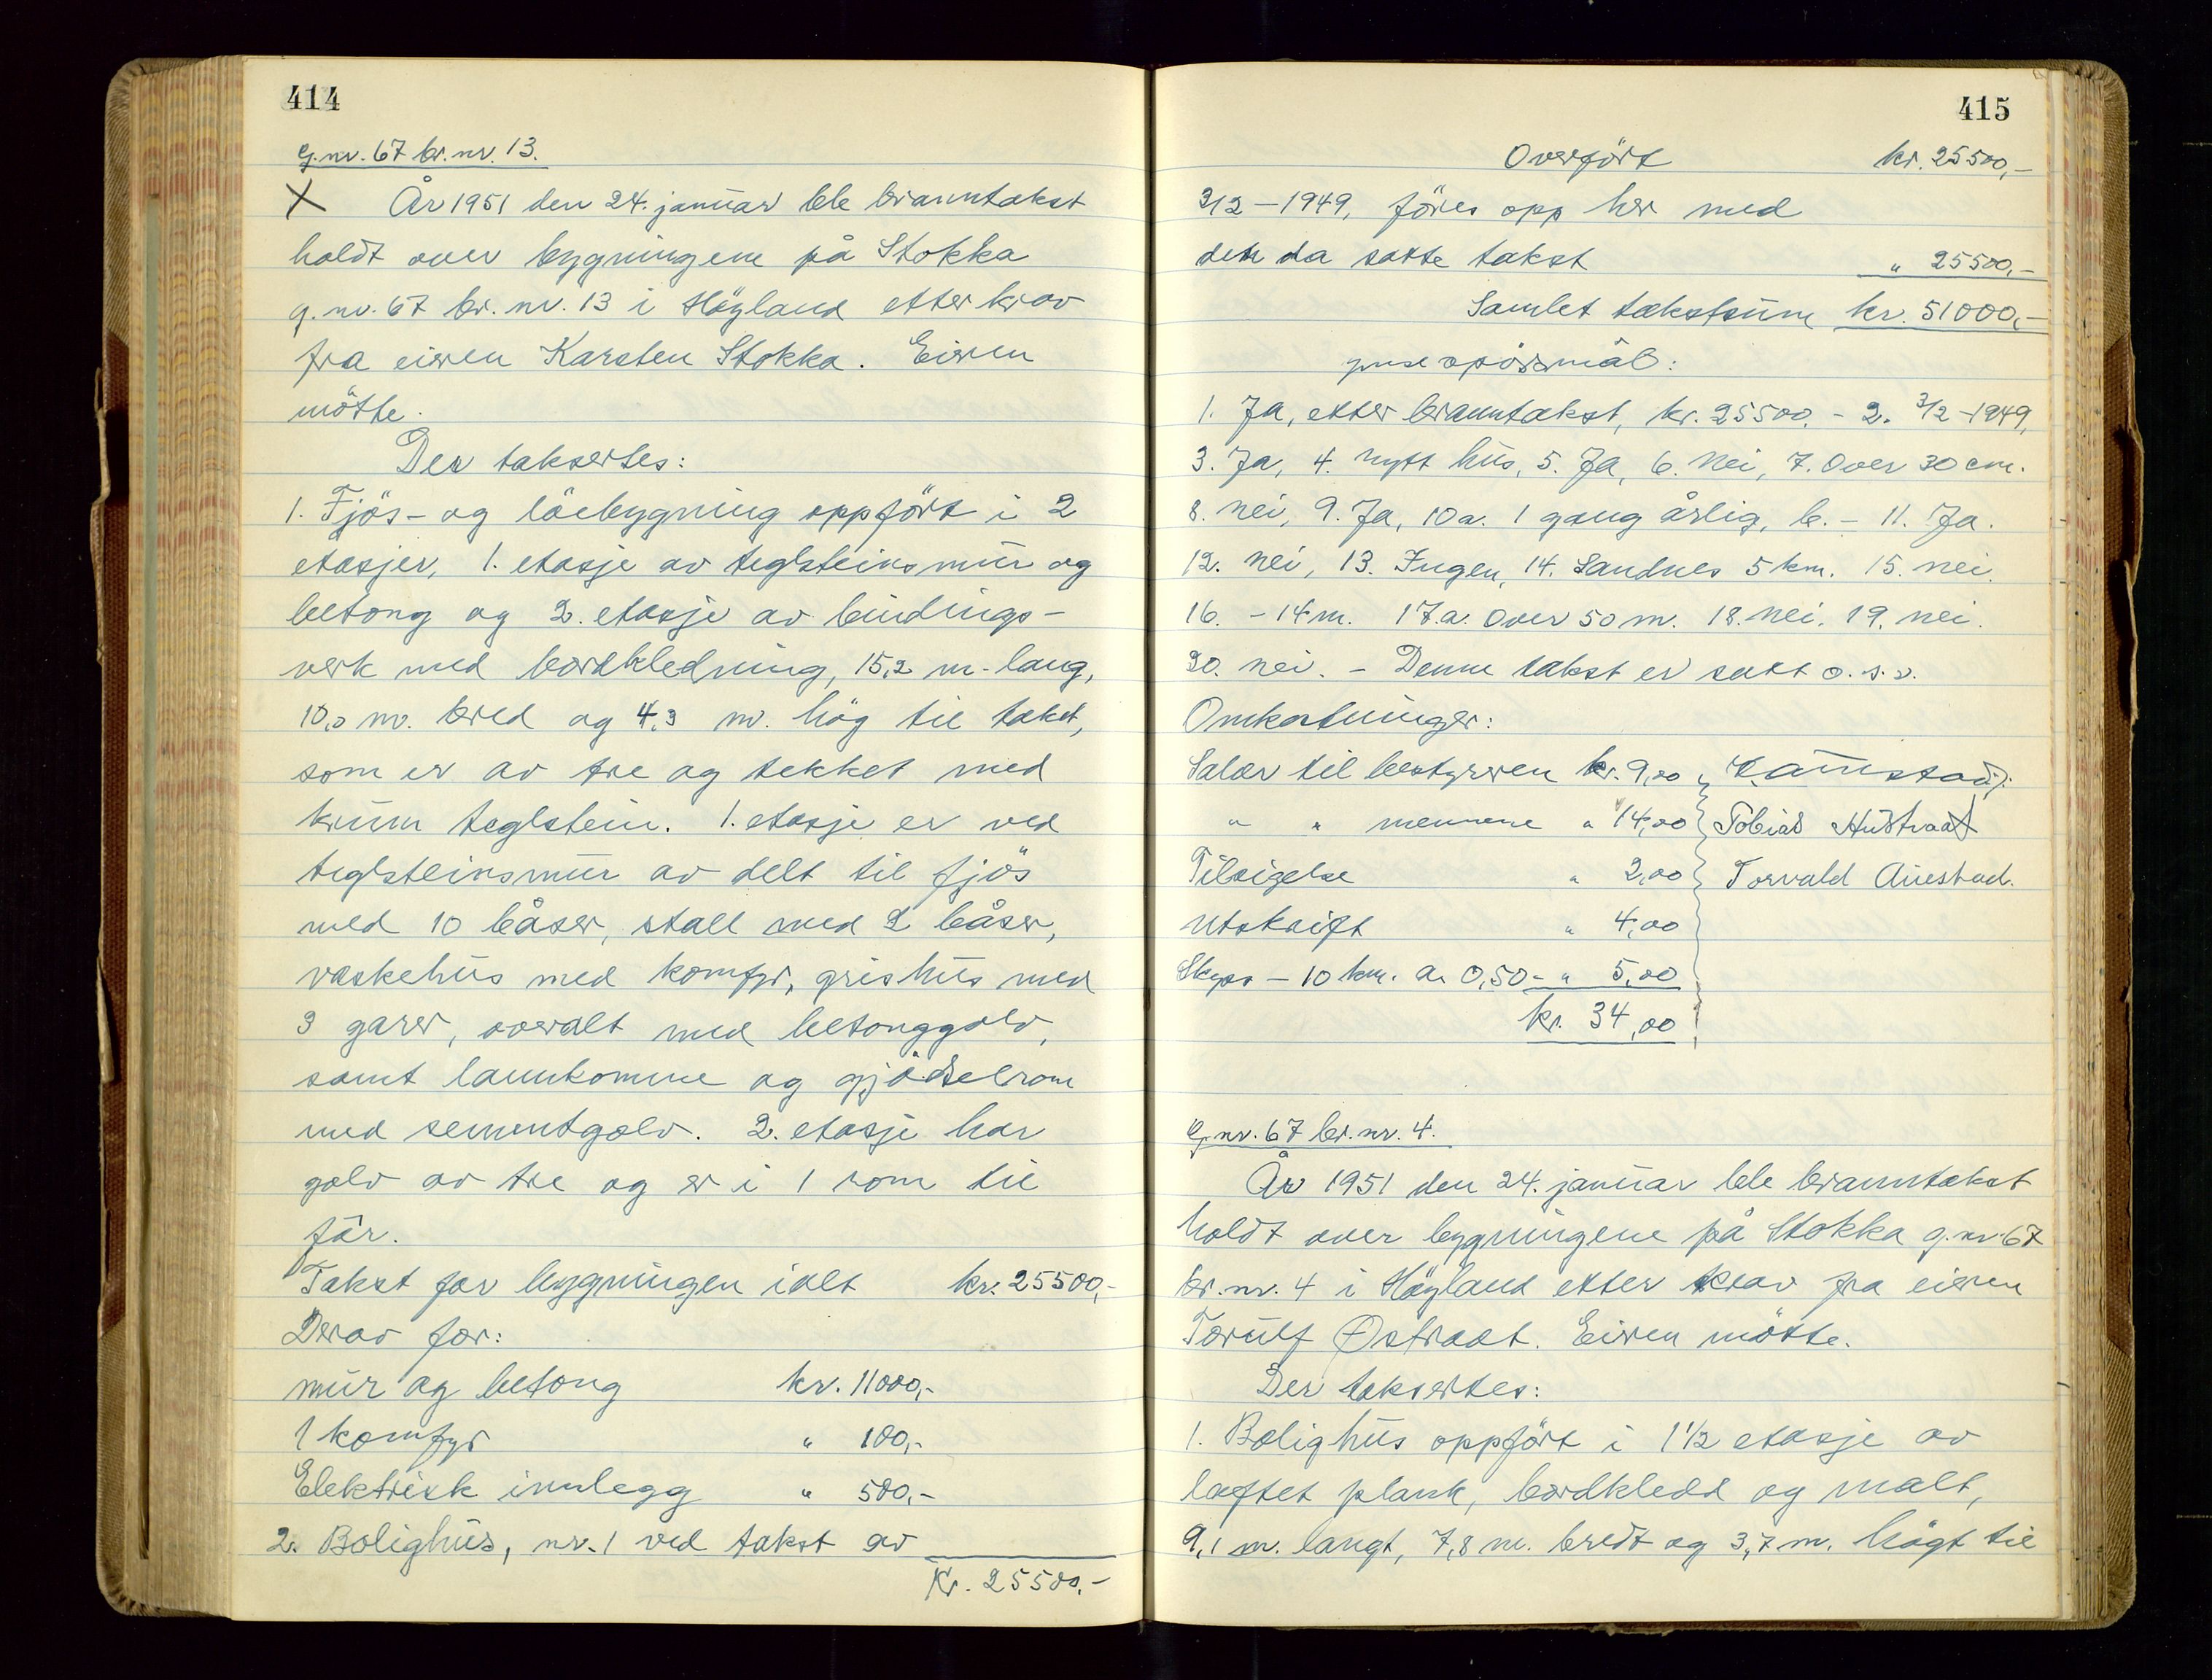 414
G.nr. 67 br.nr. 13.
X År 1951 den 24. januar ble branntakst
holdt over bygningene på Stokka
g.nr. 67 br. nr. 13 i Höyland etter krav
fra eieren Karsten Stokka. Eieren
mötte.
Der taksertes:
1. Fjös- og löebygning oppfört i 2
etasjer, 1. etasje av teglsteinsmur og
betong og 2. etasje av bindings-
verk med bordkledning, 15,2 m. lang,
10,0 m. bred og 4,3 m. hög til taket,
som er av tre og tekket med
krum teglstein. 1. etasje er ved
teglsteinsmur av delt til fjös
med 10 båser, stall med 2 båser,
vaskehus med komfyr, grishus med
3 garer, overalt med betonggolv,
samt lannkomme og gjödselrom
med sementgolv. 2. etasje har
golv av tre og er i 1 rom til
fôr.
Takst for bygningen ialt kr. 25500,-
Derav for:
mur og betong kr. 11000,-
1 komfyr " 100,-
Elektrisk innlegg " 500,-
2. Bolighus, nr. 1 ved takst av
Kr. 25500,-
415
Overfört kr. 25500,-
3/2-1949, föres opp her med
den da satte takst " 25500,-
Samlet takstsum kr. 51000,-
spörsmål:
1. Ja, etter branntakst, kr. 25500,- 2. 3/2-1949,
3. Ja, 4. nytt hus, 5. Ja, 6. Nei, 7. Over 30 cm.
8. Nei, 9. Ja, 10a. 1 gang årlig, b. - 11. Ja.
12. Nei, 13. Ingen, 14. Sandnes 5 km. 15. Nei.
16. - 14 m. 17.a. Over 50 m. 18. Nei. 19. Nei.
20. Nei. - Denne takst er satt o.s.v.
Omkostninger:
Salær til bestyreren kr. 9,00
" " mennene " 14,00 Tobias Austraat
Tilsigelse " 2,00 Torvald Auestad.
Utskrift " 4,00
Skyss - 10 km. a 0,50 - " 5,00
kr. 34,00
G.nr. 67 br.nr. 4.
År 1951 den 24. januar ble branntakst
holdt over bygningene på Stokka g.nr. 67
br.nr. 4 i Höyland etter krav fra eieren
Torulf Østraat. Eieren mötte.
Der taksertes:
1. Bolighus oppfört i 1 1/2 etasje av
laftet plank, bordkledd og malt,
9,1 m. langt, 7,8 m. bredt og 3,7 m. högt til